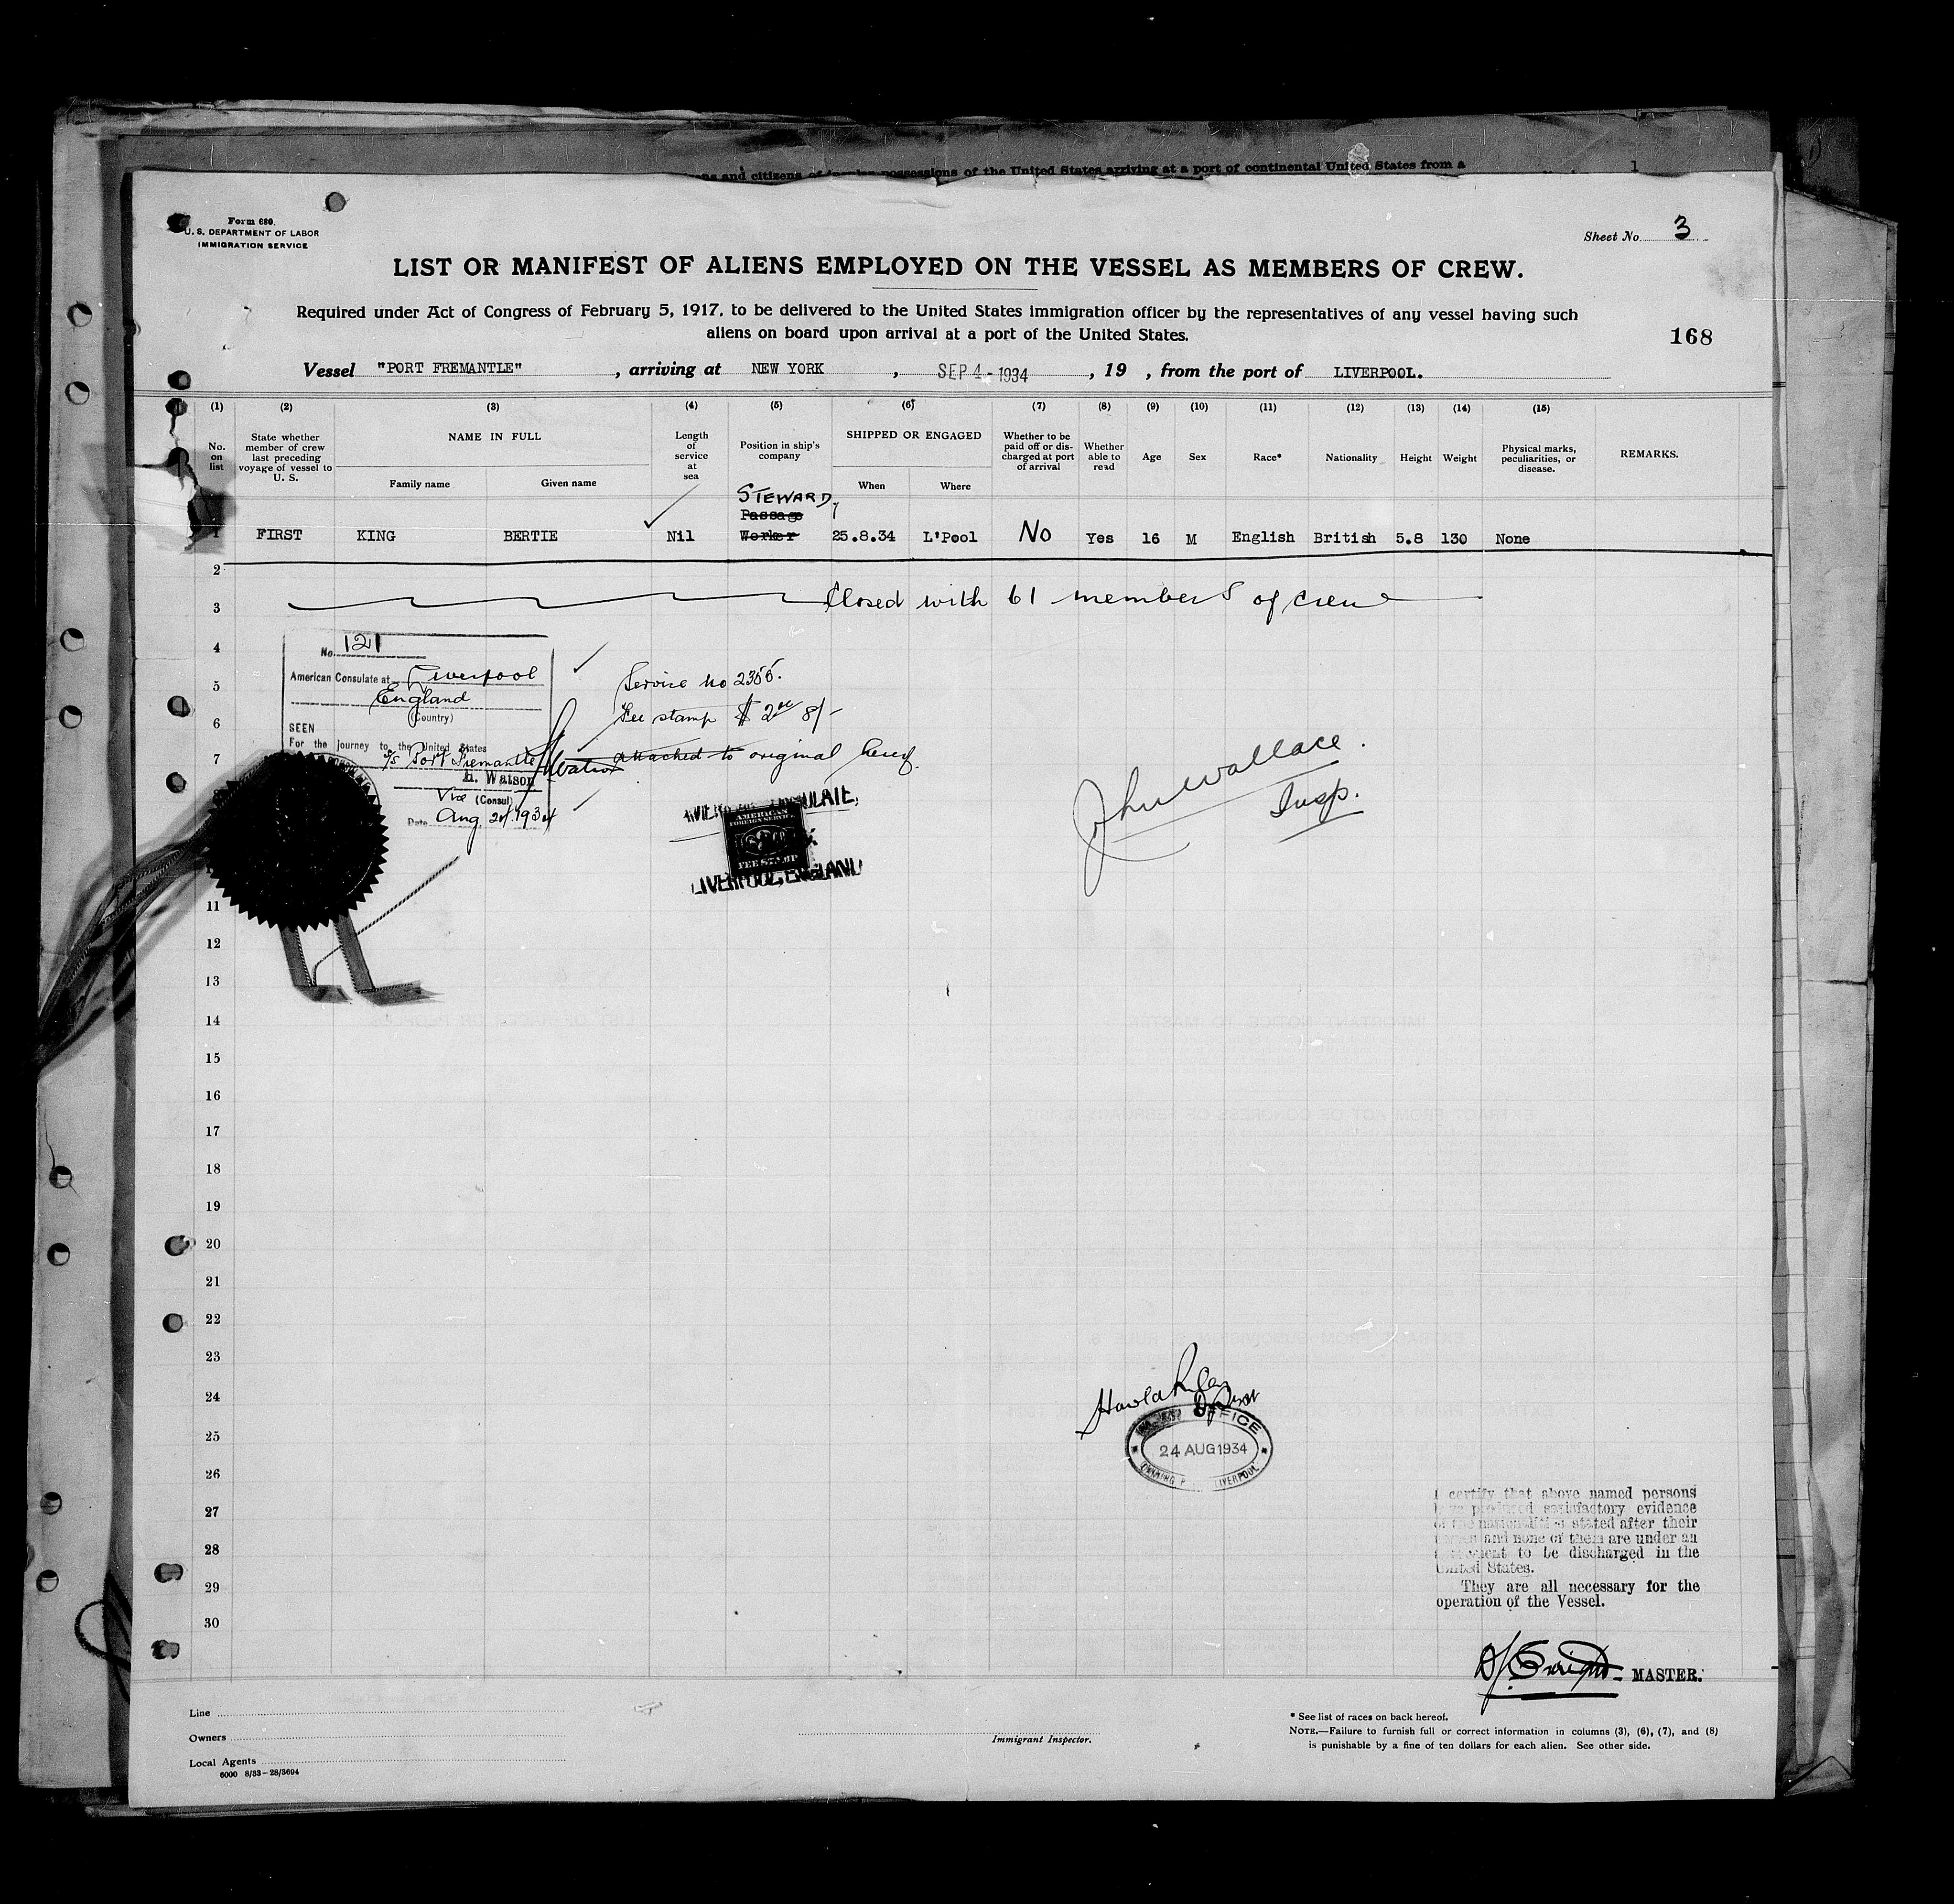 ens and citizens of insular possessions of the United States arriving at a port of continental United States from a
1
Form 680.
U. S. DEPARTMENT OF LABOR
IMMIGRATION SERVICE
Sheet No. 3
LIST OR MANIFEST OF ALIENS EMPLOYED ON THE VESSEL AS MEMBERS OF CREW.
Required under Act of Congress of February 5, 1917, to be delivered to the United States immigration officer by the representatives of any vessel having such
aliens on board upon arrival at a port of the United States.
168
Vessel "PORT FREMANTLE", arriving at NEW YORK, SEP 4-1934, 19 , from the port of LIVERPOOL.
(1) (2) (3) (4) (5) (6) (7) (8) (9) (10) (11) (12) (13) (14) (15)
No. on list
State whether member of crew last preceding voyage of vessel to U. S.
NAME IN FULL
Family name
Given name
Length of service at sea
Position in ship's company
SHIPPED OR ENGAGED
When
Where
Whether to be paid off or discharged at port of arrival
Whether able to read
Age
Sex
Race*
Nationality
Height
Weight
Physical marks, peculiarities, or disease.
REMARKS.
STEWARD
Passage
1 FIRST KING BERTIE Nil Worker 25.8.34 L'Pool No Yes 16 M English British 5.8 130 None
2
3 Closed with 61 members of crew
4
No. 121
American Consulate at Liverpool
5
Service no 2355.
England
(Country)
6
Fee stamp $2.00 8/-
SEEN
For the journey to the United States
7
S/S Port Fremantle
attached to original hereof.
H. Watson
Vice (Consul)
Date Aug. 24. 1934
AMERICAN CONSULATE,
AMERICAN
FOREIGN SERVICE
FEE STAMP
LIVERPOOL, ENGLAND
John Wallace.
Insp.
11
12
13
14
15
16
17
18
19
20
21
22
23
24
25
26
27
28
29
30
Harold
OFFICE
24 AUG 1934
LIVERPOOL
I certify that above named persons
have produced satisfactory evidence
of the nationalities stated after their
names and none of them are under an
agreement to be discharged in the
United States.
They are all necessary for the
operation of the Vessel.
MASTER.
Line
Owners
Local Agents
6000 8/33-28/3694
Immigrant Inspector.
* See list of races on back hereof.
NOTE.—Failure to furnish full or correct information in columns (3), (6), (7), and (8)
is punishable by a fine of ten dollars for each alien. See other side.